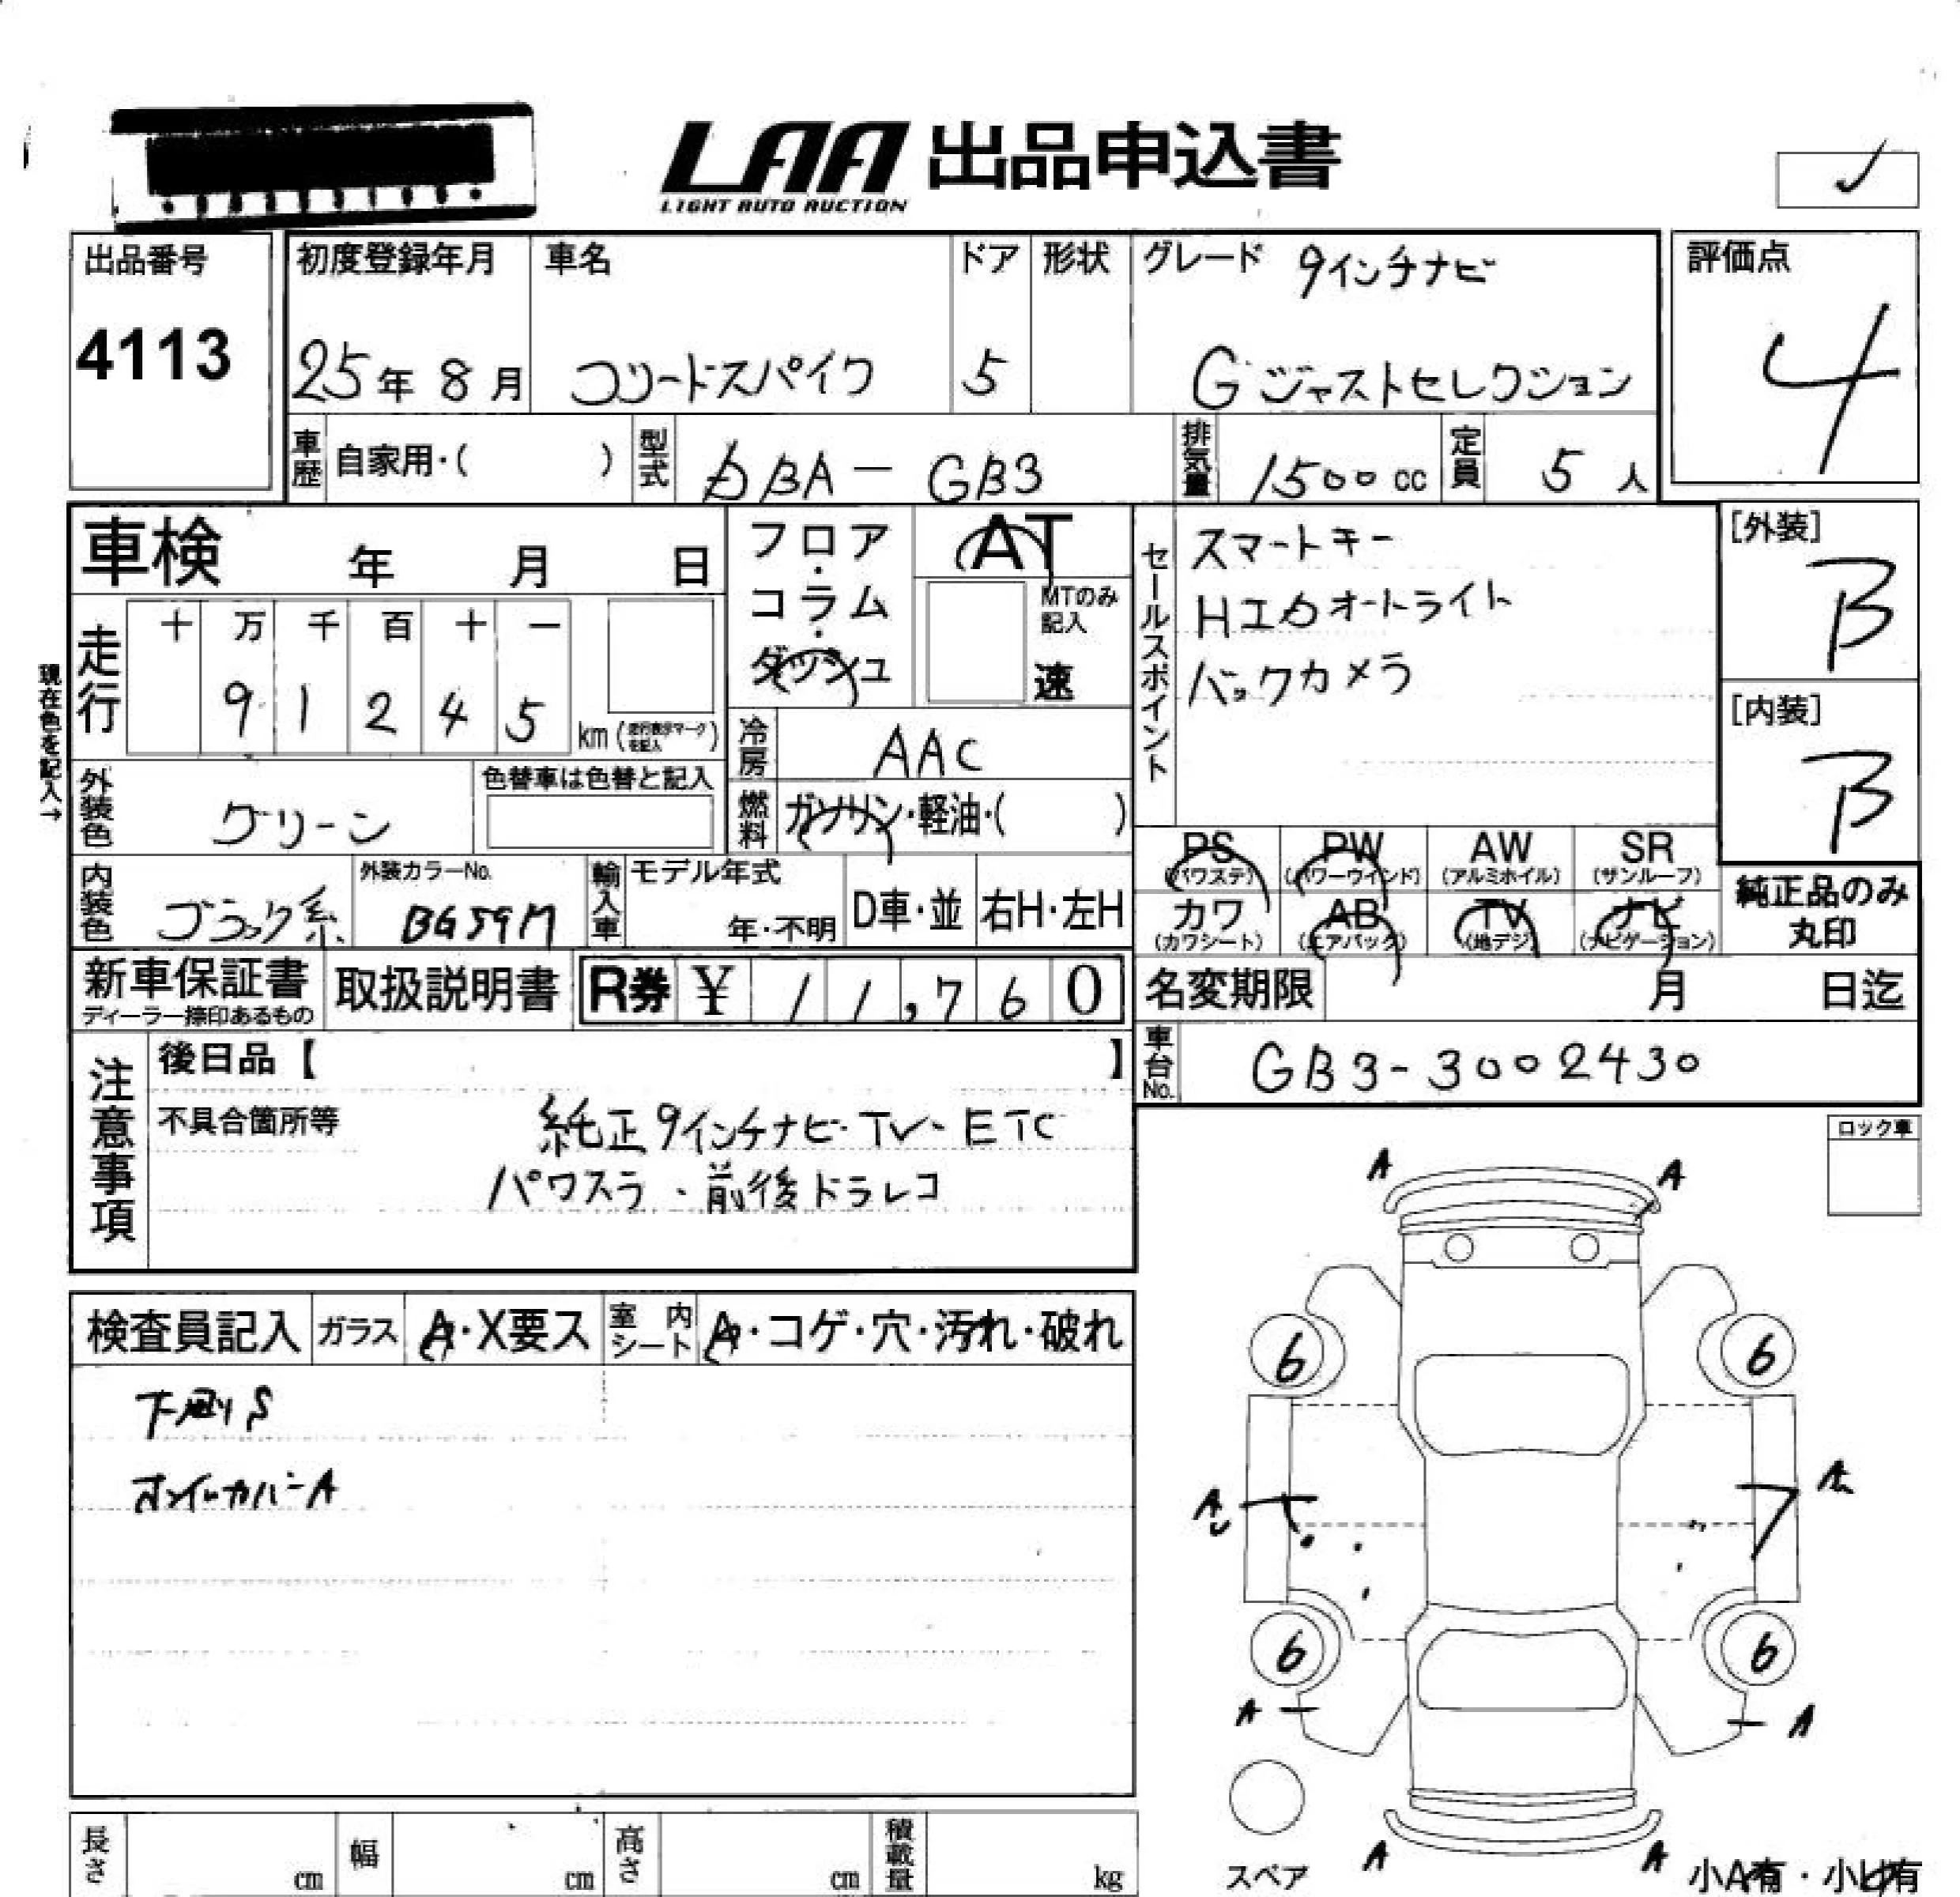 LAA 出品申込書
LIGHT AUTO AUCTION
出品番号
4113
初度登録年月
25年 8月
車名
フリードスパイク
ドア
5
形状
グレード 9インチナビ
Gジャストセレクション
評価点
4
車歴 自家用・( )
型式 DBA-GB3
排気量 1500cc
定員 5人
車検 年 月 日
フロア・コラム・ダッシュ
AT
MTのみ記入
速
セールスポイント
スマートキー
HIDオートライト
バックカメラ
[外装]
B
[内装]
B
現在色を記入→
走行
十 万 千 百 十 一
9 1 2 4 5
km(走行表示マークを記入)
冷房 AAC
外装色 グリーン
色替車は色替と記入
燃料 ガソリン・軽油・( )
内装色 ブラック系
外装カラーNo.
BG59M
輸入車
モデル年式
年・不明
D車・並
右H・左H
PS (パワステ)
PW (パワーウインド)
AW (アルミホイル)
SR (サンルーフ)
カワ (カワシート)
AB (エアバック)
TV (地デジ)
ナビ (ナビゲーション)
純正品のみ
丸印
新車保証書
ディーラー捺印あるもの
取扱説明書
R券 ¥ 11,760
名変期限 月 日迄
車台No. GB3-3002430
注意事項
後日品【 】
不具合箇所等
純正9インチナビ・TV・ETC
パワスラ・前後ドラレコ
ロック車
検査員記入
ガラス A・X要ス
室内シート A・コゲ・穴・汚れ・破れ
下廻りS
ホイールカバーA
A A
6 6
A A
6 6
A A
スペア
A A
小A有・小U有
長さ cm
幅 cm
高さ cm
積載量 kg